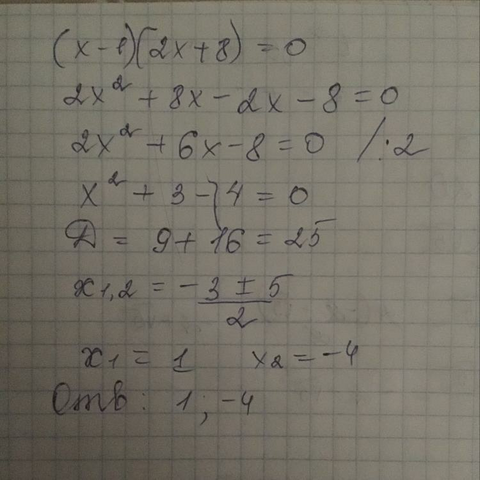 (x-1)(2x+8)=0
2x² + 8x - 2x - 8 = 0
2x² + 6x - 8 = 0 /:2
x² + 3 - 4 = 0
Д = 9 + 16 = 25
x1,2 = -3 ± 5 / 2
x1 = 1 x2 = -4
Отв: 1; -4